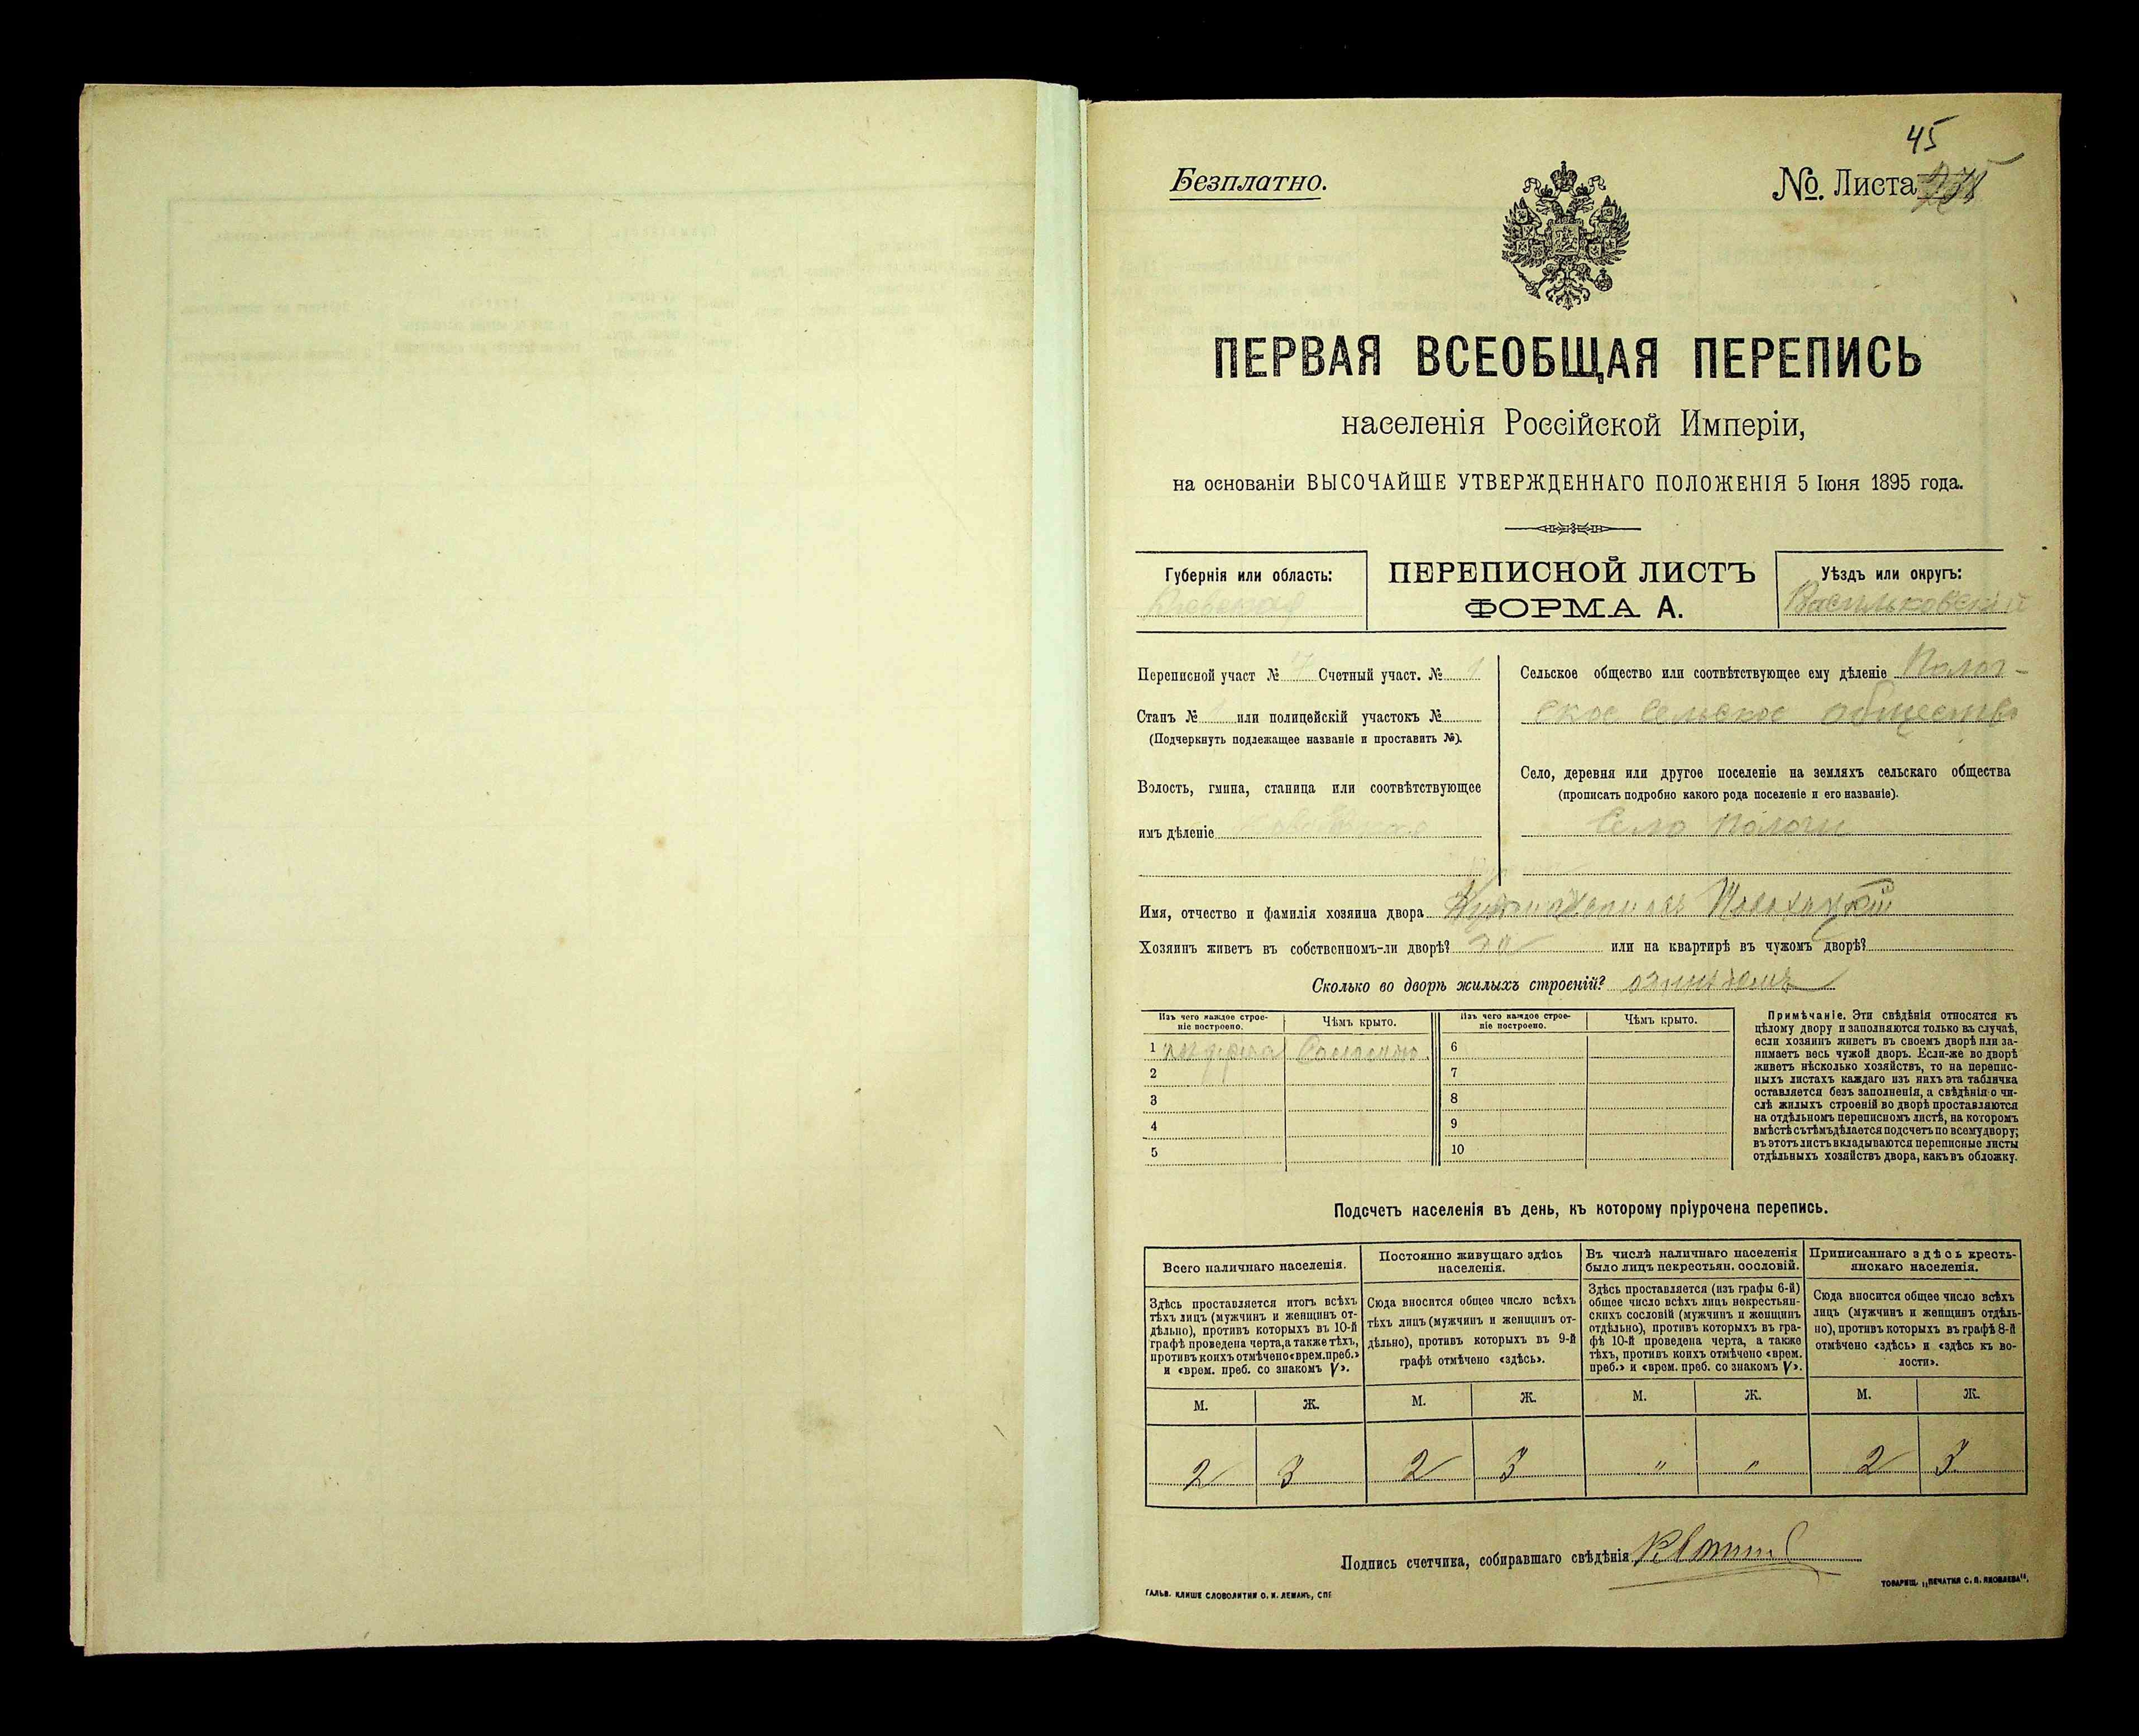 45
Безплатно.
№. Листа
ПЕРВАЯ ВСЕОБЩАЯ ПЕРЕПИСЬ
населенія Россійской Имперіи,
на основаніи ВЫСОЧАЙШЕ УТВЕРЖДЕННАГО ПОЛОЖЕНІЯ 5 Іюня 1895 года.
Губернія или область:
Кіевская
ПЕРЕПИСНОЙ ЛИСТЪ
ФОРМА А.
Уѣздъ или округъ:
Васильковскій
Переписной участ № Счетный участ. № 1
Станъ № 1 или полицейскій участокъ №
(Подчеркнуть подлежащее названіе и проставить №).
Волость, гмина, станица или соотвѣтствующее
имъ дѣленіе
Сельское общество или соотвѣтствующее ему дѣленіе Полог-
ское сельское общество
Село, деревня или другое поселеніе на земляхъ сельскаго общества
(прописать подробно какого рода поселеніе и его названіе).
Село Пологи
Имя, отчество и фамилія хозяина двора
Хозяинъ живетъ въ собственномъ-ли дворѣ? или на квартирѣ въ чужомъ дворѣ?
Сколько во дворѣ жилыхъ строеній?
Изъ чего каждое строе-
ніе построено.
Чѣмъ крыто.
Изъ чего каждое строе-
ніе построено.
Чѣмъ крыто.
1 изъ дерева Соломою. 6
2 7
3 8
4 9
5 10
Примѣчаніе. Эти свѣдѣнія относятся къ
цѣлому двору и заполняются только въ случаѣ,
если хозяинъ живетъ въ своемъ дворѣ или за-
нимаетъ весь чужой дворъ. Если-же во дворѣ
живетъ нѣсколько хозяйствъ, то на перепис-
ныхъ листахъ каждаго изъ нихъ эта табличка
оставляется безъ заполненія, а свѣдѣнія о чи-
слѣ жилыхъ строеній во дворѣ проставляются
на отдѣльномъ переписномъ листѣ, на которомъ
вмѣстѣ съ тѣмъ дѣлается подсчетъ по всему двору;
въ этотъ листъ вкладываются переписные листы
отдѣльныхъ хозяйствъ двора, какъ въ обложку.
Подсчетъ населенія въ день, къ которому пріурочена перепись.
Всего наличнаго населенія.
Постоянно живущаго здѣсь
населенія.
Въ числѣ наличнаго населенія
было лицъ некрестьян. сословій.
Приписаннаго здѣсь кресть-
янскаго населенія.
Здѣсь проставляется итогъ всѣхъ
тѣхъ лицъ (мужчинъ и женщинъ от-
дѣльно), противъ которыхъ въ 10-й
графѣ проведена черта, а также тѣхъ,
противъ коихъ отмѣчено «врем. преб.»
и «врем. преб. со знакомъ V».
Сюда вносится общее число всѣхъ
тѣхъ лицъ (мужчинъ и женщинъ от-
дѣльно), противъ которыхъ въ 9-й
графѣ отмѣчено «здѣсь».
Здѣсь проставляется (изъ графы 6-й)
общее число всѣхъ лицъ некрестьян-
скихъ сословій (мужчинъ и женщинъ
отдѣльно), противъ которыхъ въ гра-
фѣ 10-й проведена черта, а также
тѣхъ, противъ коихъ отмѣчено «врем.
преб.» и «врем. преб. со знакомъ V».
Сюда вносится общее число всѣхъ
лицъ (мужчинъ и женщинъ отдѣль-
но), противъ которыхъ въ графѣ 8-й
отмѣчено «здѣсь» и «здѣсь къ во-
лости».
М. Ж. М. Ж. М. Ж. М. Ж.
2 3 2 3 " " 2 3
Подпись счетчика, собиравшаго свѣдѣнія
ГАЛЬВ. КЛИШЕ СЛОВОЛИТНИ О. И. ЛЕМАНЪ, СПБ
ТОВАРИЩ. „ПЕЧАТНЯ С. П. ЯКОВЛЕВА".